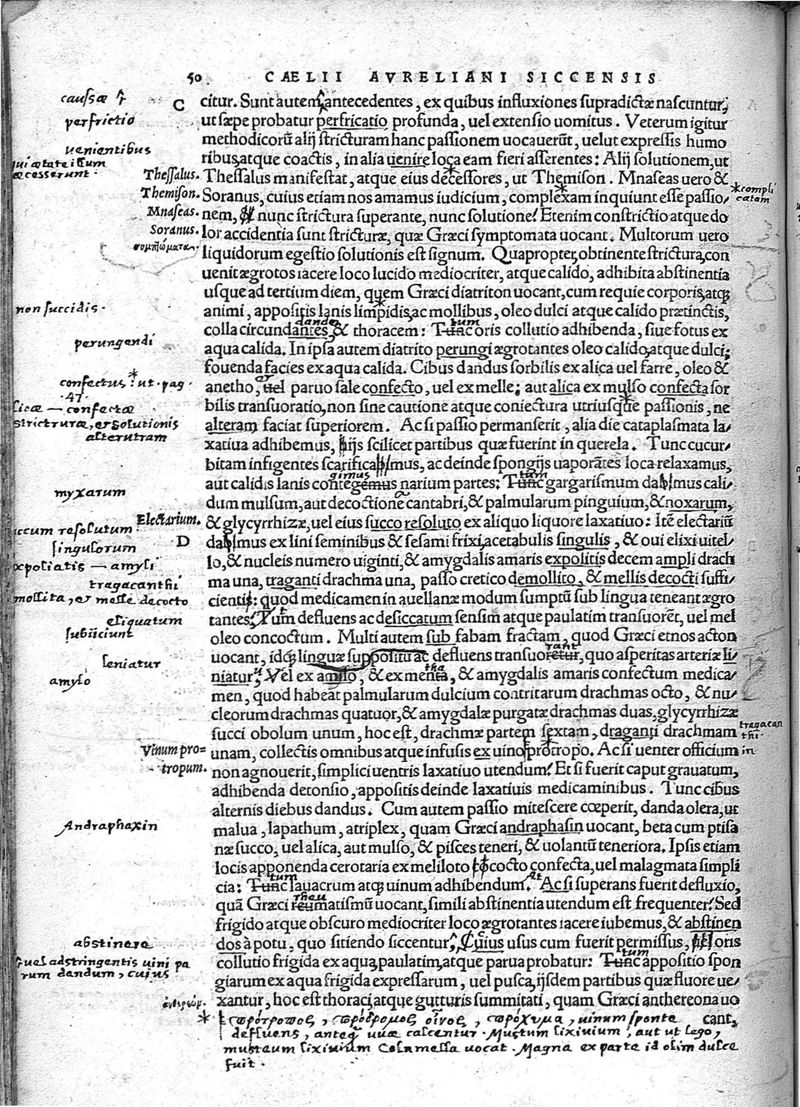 50 CAELII AVRELIANI SICCENSIS
caussæ
perfrictio
uenientibus
æcesserunt.
Thessalus.
Themison.
Mnaseas.
Soranus.
*compli
catam
non succidis.
perungendi
confectus: ut pag.
47.
licæ — confectæ
strictruræ, et solutionis
alterutram
myxarum
Electarium.
ccum resolutum
singulorum
xpoliatis — amyli
tragacanthi
mollita, et melle decocto
eliquatum
subijciunt
leniatur
amylo
Vinum pro=
tropum.
tragacan
thi.
in
Andraphaxin
abstinere
uel adstringentis uini pa
rum dandum, cuius
C citur. Sunt autem antecedentes, ex quibus influxiones supradictæ nascuntur,
ut sæpe probatur perfricatio profunda, uel extensio uomitus. Veterum igitur
methodicorũ alij stricturam hanc passionem uocauerũt, uelut expressis humo
ribus, atque coactis, in alia uenire loca eam fieri asserentes: Alij solutionem, ut
Thessalus manifestat, atque eius decessores, ut Themison. Mnaseas uero &
Soranus, cuius etiam nos amamus iudicium, complexam inquiunt esse passio-
nem, nunc strictura superante, nunc solutione! Etenim constrictio atque do
lor accidentia sunt stricturæ, quæ Græci symptomata uocant. Multorum uero
liquidorum egestio solutionis est signum. Quapropter, obtinente strictura, con
uenit ægrotos iacere loco lucido mediocriter, atque calido, adhibita abstinentia
usque ad tertium diem, quem Græci diatriton uocant, cum requie corporis, atq;
animi, appositis lanis limpidis, ac mollibus, oleo dulci atque calido prætinctis,
colla circundantes & thoracem: Tunc oris collutio adhibenda, siue fotus ex
aqua calida. In ipsa autem diatrito perungi ægrotantes oleo calido, atque dulci,
fouenda facies ex aqua calida. Cibus dandus sorbilis ex alica uel farre, oleo &
anetho, uel paruo sale confecto, uel ex melle; aut alica ex mulso confecta sor
bilis transuoratio, non sine cautione atque coniectura utriusque passionis, ne
alteram faciat superiorem. Ac si passio permanserit, alia die cataplasmata la-
xatiua adhibemus, hijs scilicet partibus quæ fuerint in querela. Tunc cucur-
bitam infigentes scarificabimus, ac deinde spongijs uaporãtes loca relaxamus,
aut calidis lanis contegemus narium partes: Tunc gargarismum dabimus cali
dum mulsum, aut decoctione cantabri, & palmularum pinguium, & noxarum,
& glycyrrhizæ, uel eius succo resoluto ex aliquo liquore laxatiuo: Itẽ electariũ
D dabimus ex lini seminibus & sesami frixi, acetabulis singulis, & oui elixi uitel-
lo, & nucleis numero uiginti, & amygdalis amaris expolitis decem ampli drach
ma una, traganti drachma una, passo cretico demollito, & mellis decocti suffi-
cienti: quod medicamen in auellanæ modum sumptũ sub lingua teneant ægro
tantes! Tum defluens ac desiccatum sensim atque paulatim transuorẽt, uel mel
oleo concoctum. Multi autem sub fabam fractam, quod Græci etnos acton
uocant, idq; linguæ suppositũ ac defluens transuoretur, quo asperitas arteriæ li
niatur. Vel ex amilo, & ex menta, & amygdalis amaris confectum medica-
men, quod habeat palmularum dulcium contritarum drachmas octo, & nu-
cleorum drachmas quatuor, & amygdalæ purgatæ drachmas duas, glycyrrhizæ
succi obolum unum, hoc est, drachmæ partem sextam, draganti drachmam
unam, collectis omnibus atque infusis ex uino protropo. Ac si uenter officium
non agnouerit, simplici uentris laxatiuo utendum! Et si fuerit caput grauatum,
adhibenda detonsio, appositis deinde laxatiuis medicaminibus. Tunc cibus
alternis diebus dandus. Cum autem passio mitescere cœperit, danda olera, ut
malua, lapathum, atriplex, quam Græci andraphasin uocant, beta cum ptisa
næ succo, uel alica, aut mulso, & pisces teneri, & uolantũ teneriora. Ipsis etiam
locis apponenda cerotaria ex meliloto cocto confecta, uel malagmata simpli
cia: Tunc lauacrum atq; uinum adhibendum. Ac si superans fuerit defluxio,
quã Græci reumatismũ uocant, simili abstinentia utendum est frequenter! Sed
frigido atque obscuro mediocriter loco ægrotantes iacere iubemus, & abstinen
dos à potu, quo sitiendo siccentur. Cuius usus cum fuerit permissus, oris
collutio frigida ex aqua, paulatim, atque parua probatur: Tunc appositio spon
giarum ex aqua frigida expressarum, uel pusca, ijsdem partibus quæ fluore ue-
xantur, hoc est thoraci, atque gutturis summitati, quam Græci anthereona uo
cant.
* πρότροπος, πρόδρομος οἶνος, πρόχυμα, uinum sponte
defluens, anteq̃ uuæ calcentur. Mustum lixiuium, aut ut lego,
musteum lixiuium Columella uocat. Magna ex parte id olim dulce
fuit.